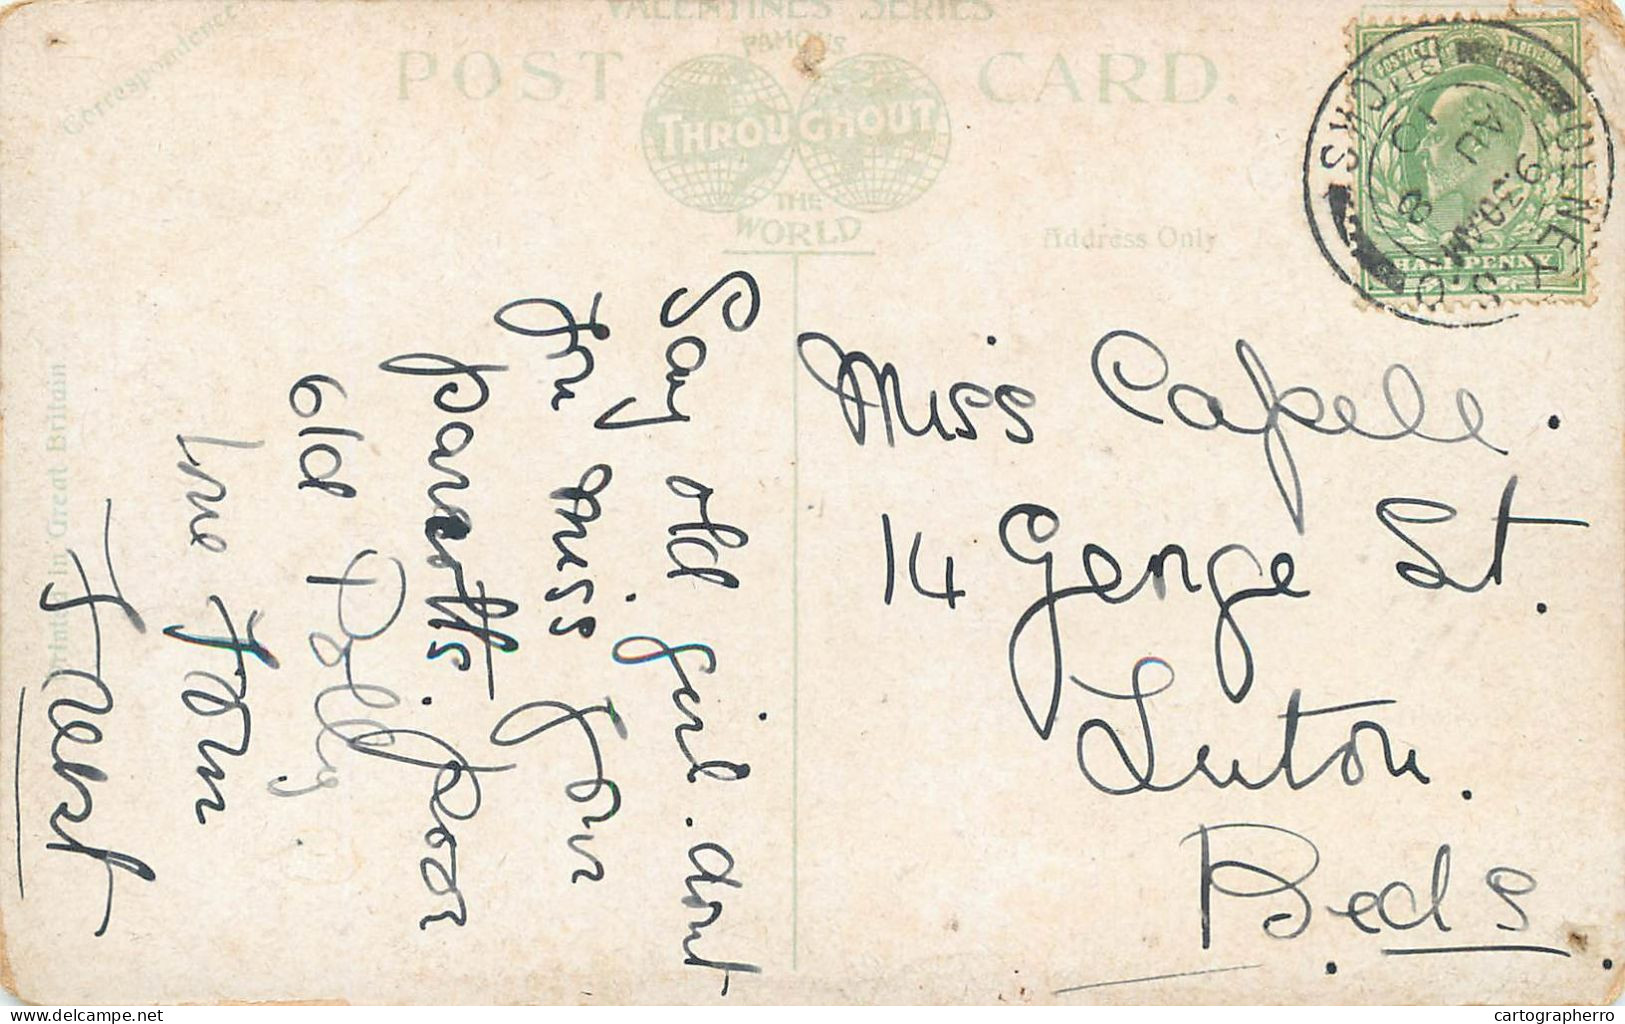 VALENTINES SERIES
FAMOUS
POST CARD.
THROUGHOUT
THE
WORLD
Correspondence
Address Only
Printed in Great Britain
POSTAGE & REVENUE
HALFPENNY
OLNEY S.O
BUCKS
9.30AM
AU 8
10
Say old girl. dont
you miss your
parrotts. poor
old Polly
love from
Frost
Miss Capell.
14 George St.
Luton.
Beds.
delcampe.net
cartographerro